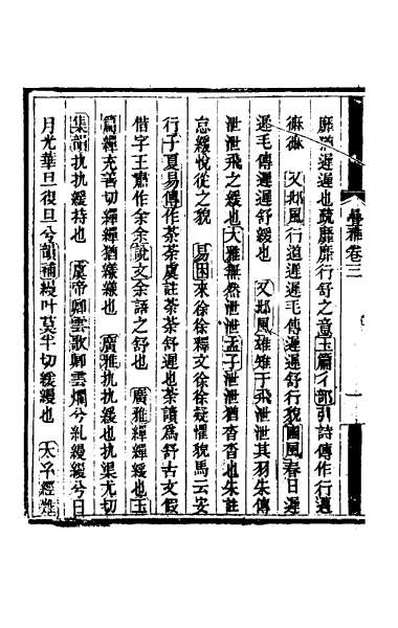 疊雅卷三
一
靡猶遲遲也疏靡靡行舒之意玉篇彳部引詩傳作行邁
𢓡𢓡 又邶風行道遲遲毛傳遲遲舒行貌豳風春日遲
遲毛傳遲遲舒緩也 又邶風雄雉于飛泄泄其羽朱傳
泄泄飛之緩也大雅無然泄泄孟子泄泄猶沓沓也朱註
怠緩悅從之貌 易困來徐徐釋文徐徐疑懼貌馬云安
行子夏易傳作荼荼虞註荼荼舒遲也荼讀為舒古文假
借字王肅作余余說文余語之舒也 廣雅繟繟緩也玉
篇繟充善切繟繟猶緩緩也 廣雅执执緩也执渠尤切
集韻执执緩持也 虞帝卿雲歌卿雲爛兮糺縵縵兮日
月光華旦復旦兮韻補縵叶莫半切緩縵也 太平經難